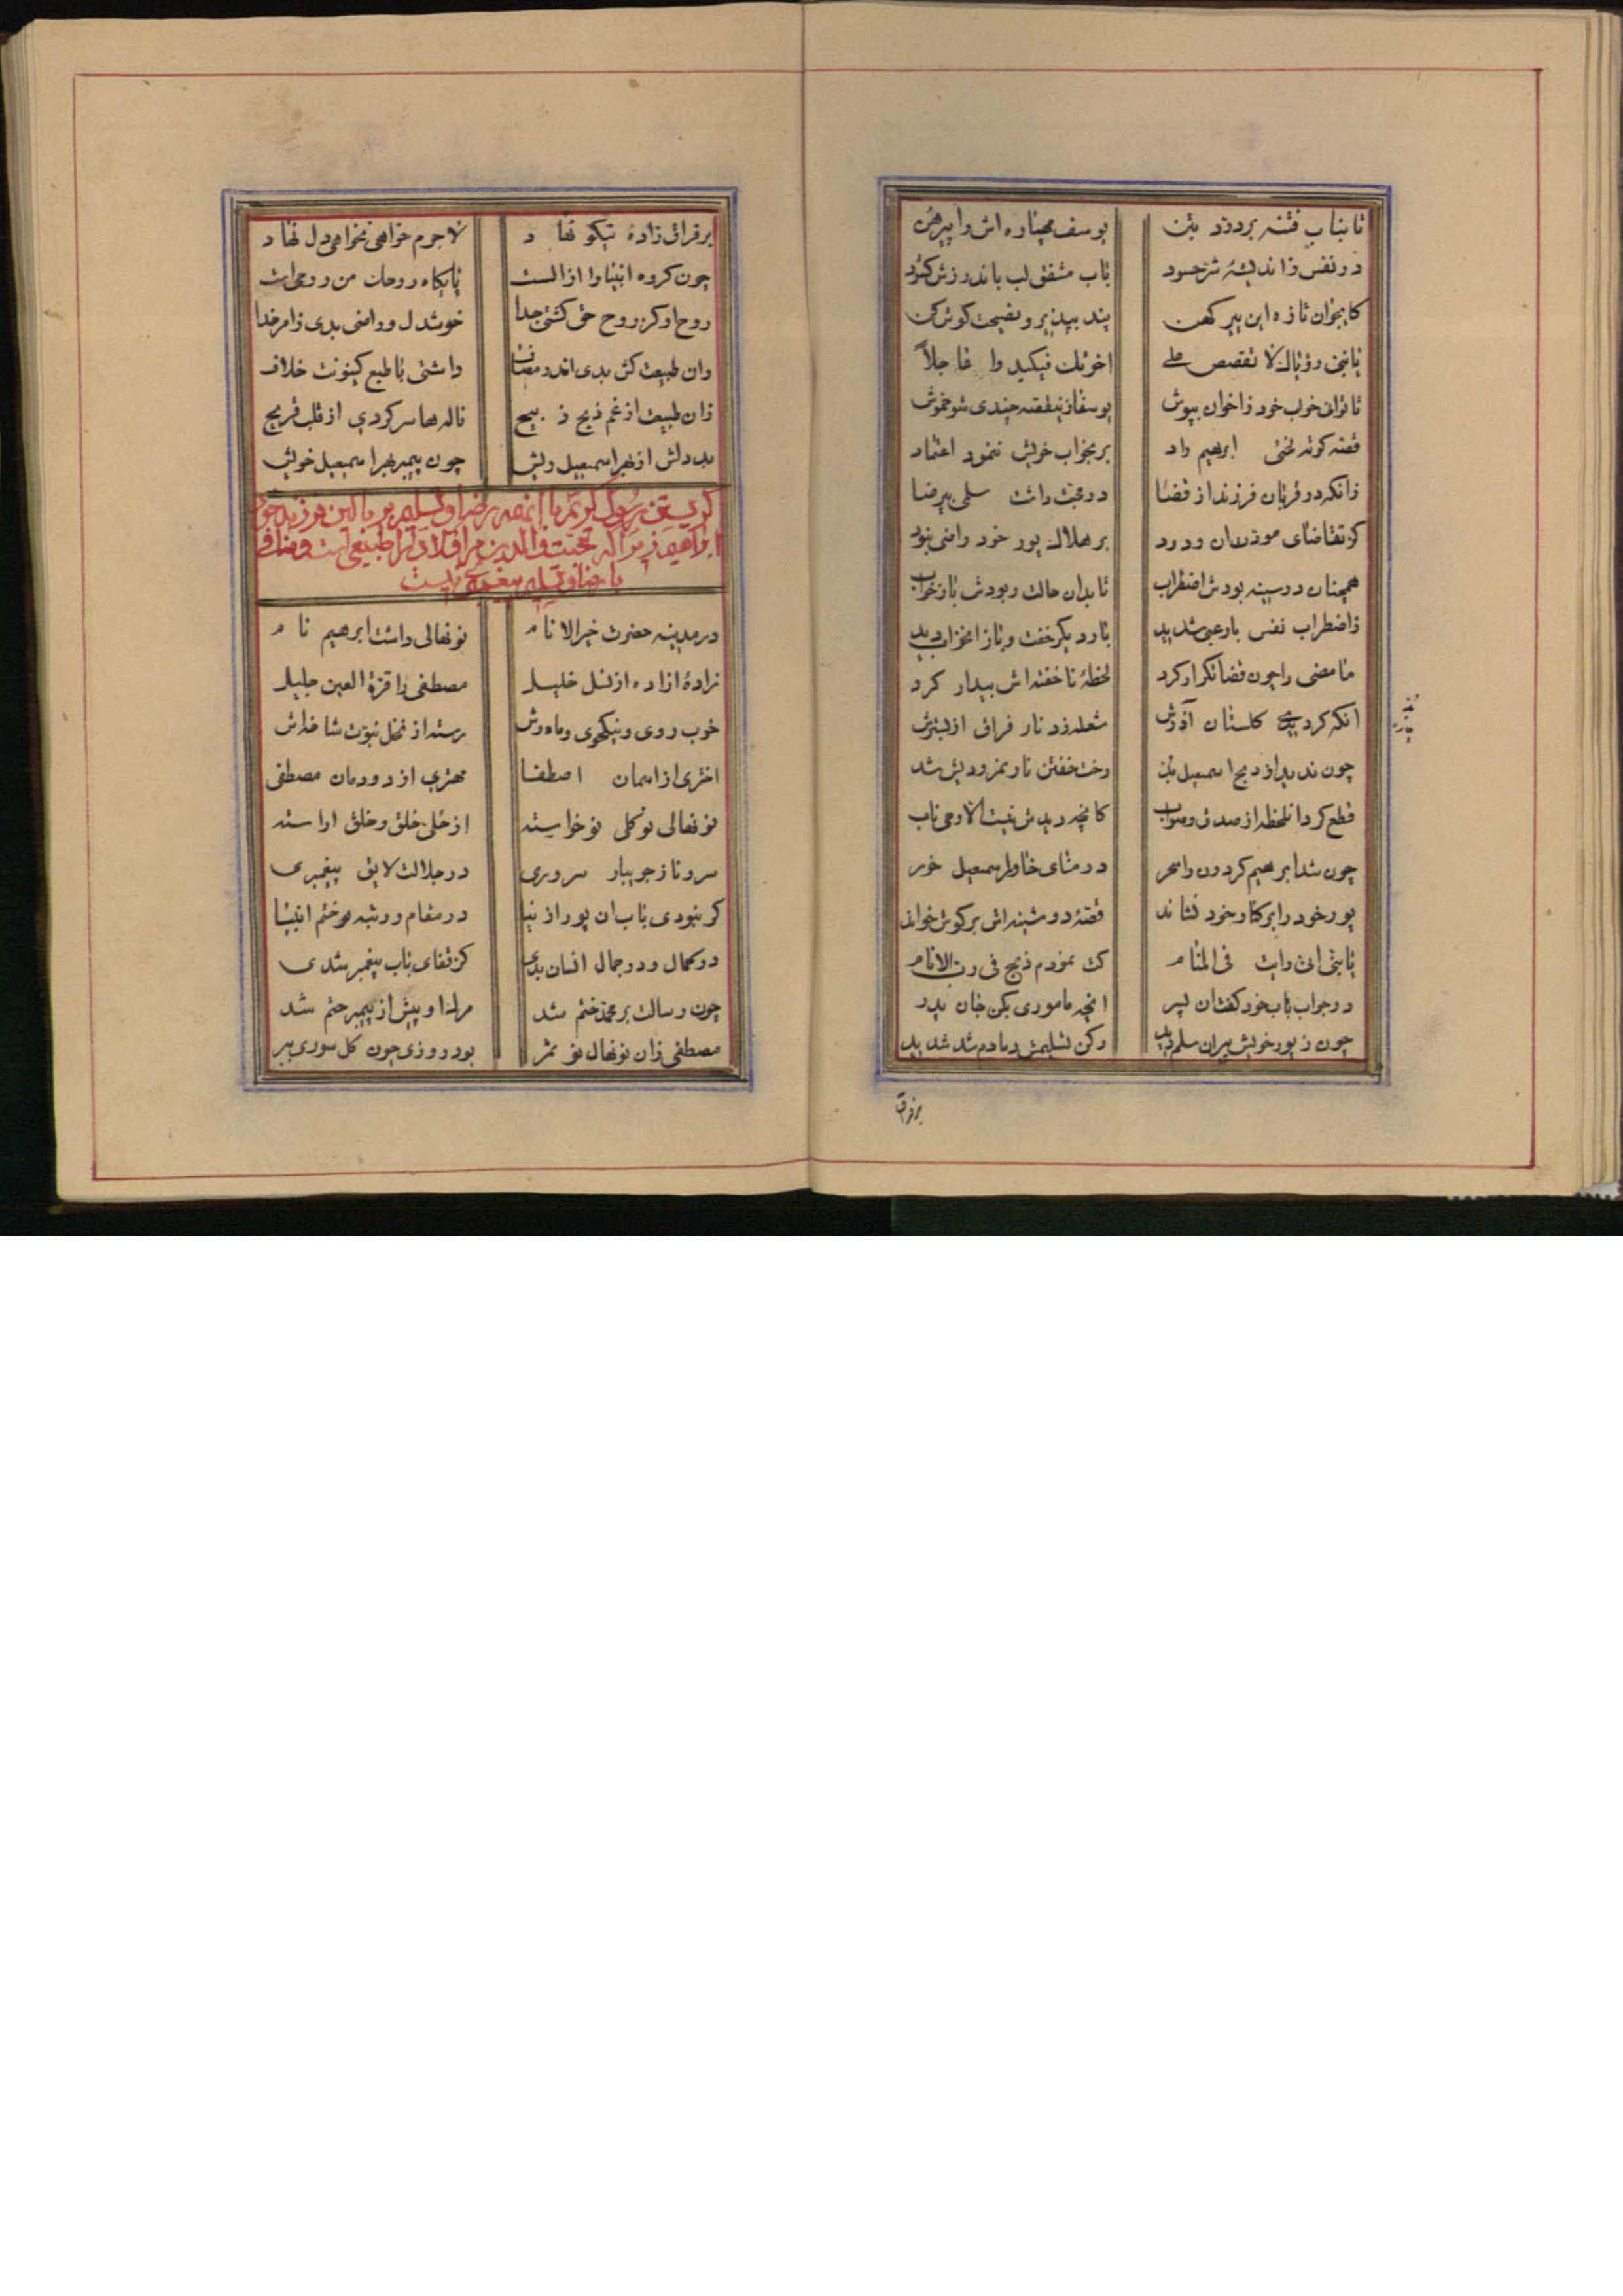 تا نیابد فتنه بر دزد بتن یوسف بیچاره اش را پیرهن
در نفس ز اندیشهٔ شر حسود باب مشفق لب باندرزش کشود
کایجوان تازه این پیر کهن پند بپذیر و نصیحت گوش کن
یا بنی رؤیاک لا تقصص علی اخوتک فیکید وا عاجلاً
تا توانی خواب خود ز اخوان بپوش یوسفا زینقصه چندی شو خموش
قصه کوته لختی ابرهیم راد بر بخواب خویش ننمود اعتماد
زانکه در قربان فرزند از قضا در محبت داشت سلمی بیرضا
کز تقاضای موذت ان ودرد بر هلاک پور خود راضی نبود
همچنان در سینه بودش اضطراب تا بدان حالت ربودش باز خواب
ز اضطراب نفس با رعبی شدید بار دیگر خفت و باز انخواب دید
ما مضی را چون قضا تکرار کرد لحظهٔ ناخفته اش بیدار کرد
انکه کردیدی گلستان آذرش شعله زد نار فراق از بسترش
چون ندید از ذبح اسمعیل بد رخت خفتن نار نمرودیش شد
قطع کرد انلحظه از صدق و صواب کانچه دیدش نیست الا وحی ناب
چون شد ابرهیم کردون را سحر در مثنای خاور اسمعیل خور
پور خود را بر کنار خود نشاند قصهٔ دوشینه اش بر گوش خواند
یا بنی انی رایت فی المنام کت نمودم ذبح فی رب الانام
در جواب باب خود گفت ان پسر انچه ماموری بکن جان پدر
چون ز پور خویش پیران سلم دید رکن تسلیمش دمادم شد شدید
برفراق
بر فراق زادهٔ نیکو نهاد لاجرم خواهی نخواهی دل نهاد
چون گروه انبیا را از الست پایگاه روحات من روحی است
روح او کز روح حق گشتی جدا خوشدل و راضی بدی ز امر خدا
وان طبیعت کش بدی اندر مضاف داشتی با طبع کینونت خلاف
زان طبیعت از غم ذبح ذبیح ناله ها سر کردی از قلب قریح
بد دلش از بهر اسمعیل ریش چون پیمبر بهر اسمعیل خویش
گریستن رسول اکرم با انهمه رضا و تسلیم بر بالین فرزند خود
ابراهیم زیرا که محبت والدین مر اولاد را طبیعی است و منافی
با رضا و تسلیم پیغمبری نیست
در مدینه حضرت خیر الانام نونهالی داشت ابرهیم نام
زادهٔ ازاده از نسل خلیل مصطفی را قرة العین جلیل
خوب روی و نیکخوی و ماه وش رسته از نخل نبوت شاخه اش
اختری از اسمان اصطفا مهتری از دودمان مصطفی
نونهالی نوگلی نوخواسته از حلی خلق و خلق اراسته
سرو ناز جویبار سروری در جلالت لایق پیغمبری
گر نبودی باب ان پور از نبا در مقام و رتبه بر ختم انبیا
در کمال و در جمال انسان بدی کز قفای باب پیغمبر شدی
چون رسالت بر محمد ختم شد مرک او پیش از پیمبر حتم شد
مصطفی زان نونهال نو ثمر بود روزی چون گل سوری ببر